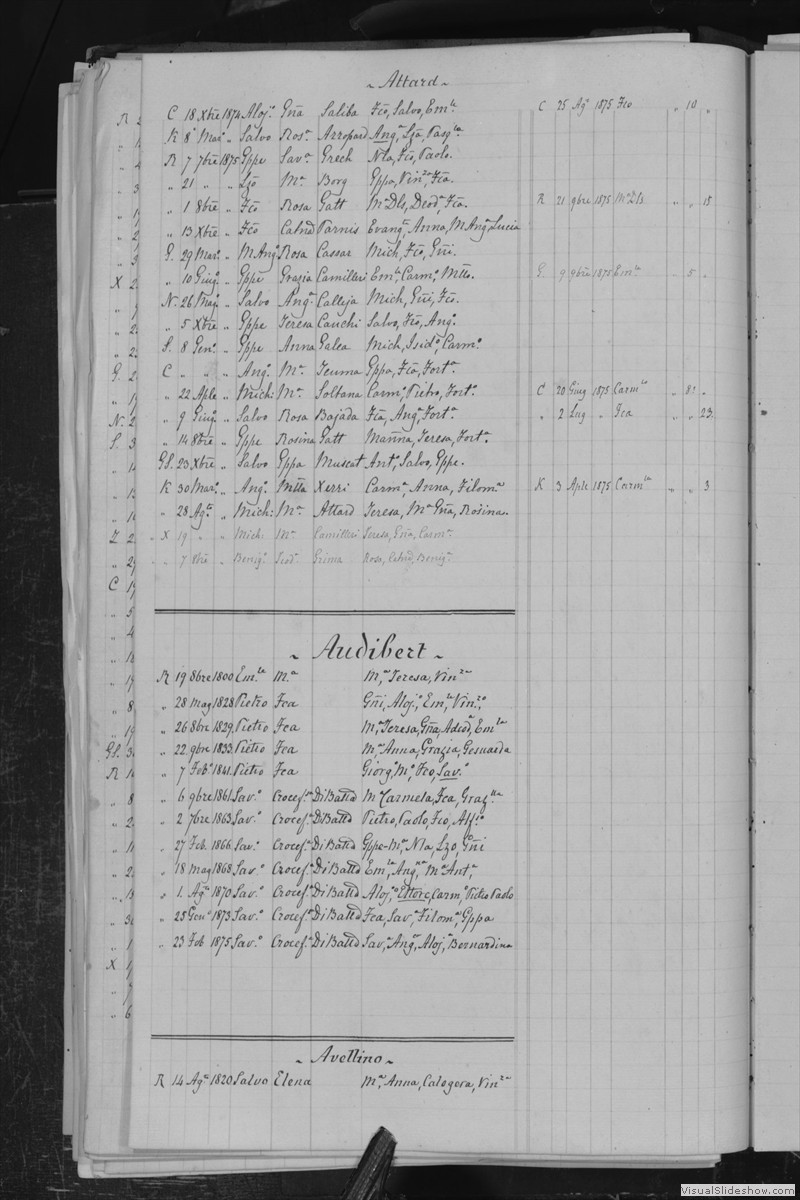 ~ Attard ~
C 18 Xbre 1874 Aloj.o Gña Saliba Fcõ, Salvo, Em.la C 25 Ag.o 1875 Fco " 10 "
K 8 Mar.o " Salvo Ros.a Arropard Ang.a, Lzõ, Pasq.le
R 7 7bre 1875 Gppe Sav.a Grech Nla, Fcõ, Paolo.
" 21 " " Lzõ M.a Borg Gppa, Vin.za, Fcã.
" 1 8bre " Fcõ Rosa Gatt M.a Dls, Deod.a, Fcã. R 21 9bre 1875 M.a Dls " " 15
" 13 Xbre " Fcõ Catnã Parnis Evang.a, Anna, M Ang.a Lucia
G. 29 Mar.o " M Ang.o Rosa Cassar Mich, Fcõ, Gñi.
" 10 Giug.o " Gppe Grazia Camilleri Em.le, Carm.o Mtto. G. 9 9bre 1875 Em.le " 5 "
N. 26 Mag.o " Salvo Ang.a Calleja Mich, Gñi, Fcõ.
" 5 Xbre " Gppe Teresa Cauchi Salvo, Fcõ, Ang.o
S. 8 Gen.o " Gppe Anna Galea Mich, Isid.o, Carm.o
C " " " Ang.o M.a Teuma Gppa, Fcã, Fort.a
" 22 Aple " Mich: M.a Soltana Carm.o Pietro, Fort.o C 20 Giug 1875 Carm.lo " 8 "
" 9 Giug.o " Salvo Rosa Bajada Fcã, Ang.a, Fort.a " 2 Lug " Fca " " 23
" 14 8bre " Gppe Rosina Gatt Marñna, Teresa, Fort.a
GS. 23 Xbre " Salvo Gppa Muscat Ant.o, Salvo, Gppe.
K 30 Mar.o " Ang.o Mtta Xerri Carm.a, Anna, Filom.a K 3 Aple 1875 Carm.la " " 3
" 28 Ag.o " Mich: M.a Attard Teresa, M.a Gña, Rosina.
X 19 " " Mich: M.a Camilleri Teresa, Gña, Carm.a
" 7 8bre " Benig.o Teod.a Grima Rosa, Catnã, Benig.a
~ Audibert ~
R 19 8bre 1800 Em.le M.a M.a Teresa, Vin.za
" 28 Mag 1828 Pietro Fca Gñi, Aloj.o Em.le Vin.zo
" 26 8bre 1829 Pietro Fca M.a Teresa, Gña, Adeod.a, Em.la
" 22 9bre 1833 Pietro Fca M.a Anna, Grazia, Gesualda
" 7 Feb.o 1841 Pietro Fca Giorg.o M.a Fco, Sav.o
" 6 9bre 1861 Sav.o Crocef.a DiBattã M.a Carmela, Fca, Graz.lla
" 2 7bre 1863 Sav.o Crocef.a DiBattã Pietro, Paolo, Fco, Alf.o
" 27 Feb. 1866 Sav.o Crocef.a DiBattã Gppe-M.a, Nla, Lzo, Gñi
" 18 Mag 1868 Sav.o Crocef.a DiBattã Em.la, Ang.lla M.a Ant.a
" 1. Ag.o 1870 Sav.o Crocef.a DiBattã Aloj.o Ettore, Carm.o, Pietro Paolo
" 25 Gen.o 1873 Sav.o Crocef.a DiBattã Fca, Sav.a Filom.a, Gppa
" 23 Feb 1875 Sav.o Crocef.a DiBattã Sav.a, Ang.a, Aloj.a Bernardina
~ Avellino ~
R 14 Ag.o 1820 Salvo Elena M.a Anna, Calogera, Vin.za
VisualSlideshow.com